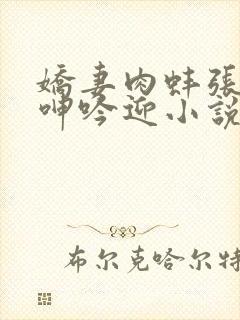 嬌妻肉蚌張
呻吟迎小說
布尔克哈尔特